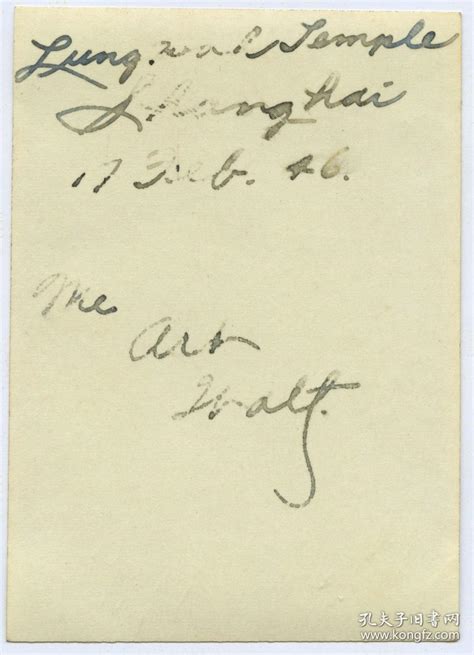 Lung-wah Temple
Shanghai
17 Feb. 46.
Me
Art
Walt.
孔夫子旧书网
www.kongfz.com